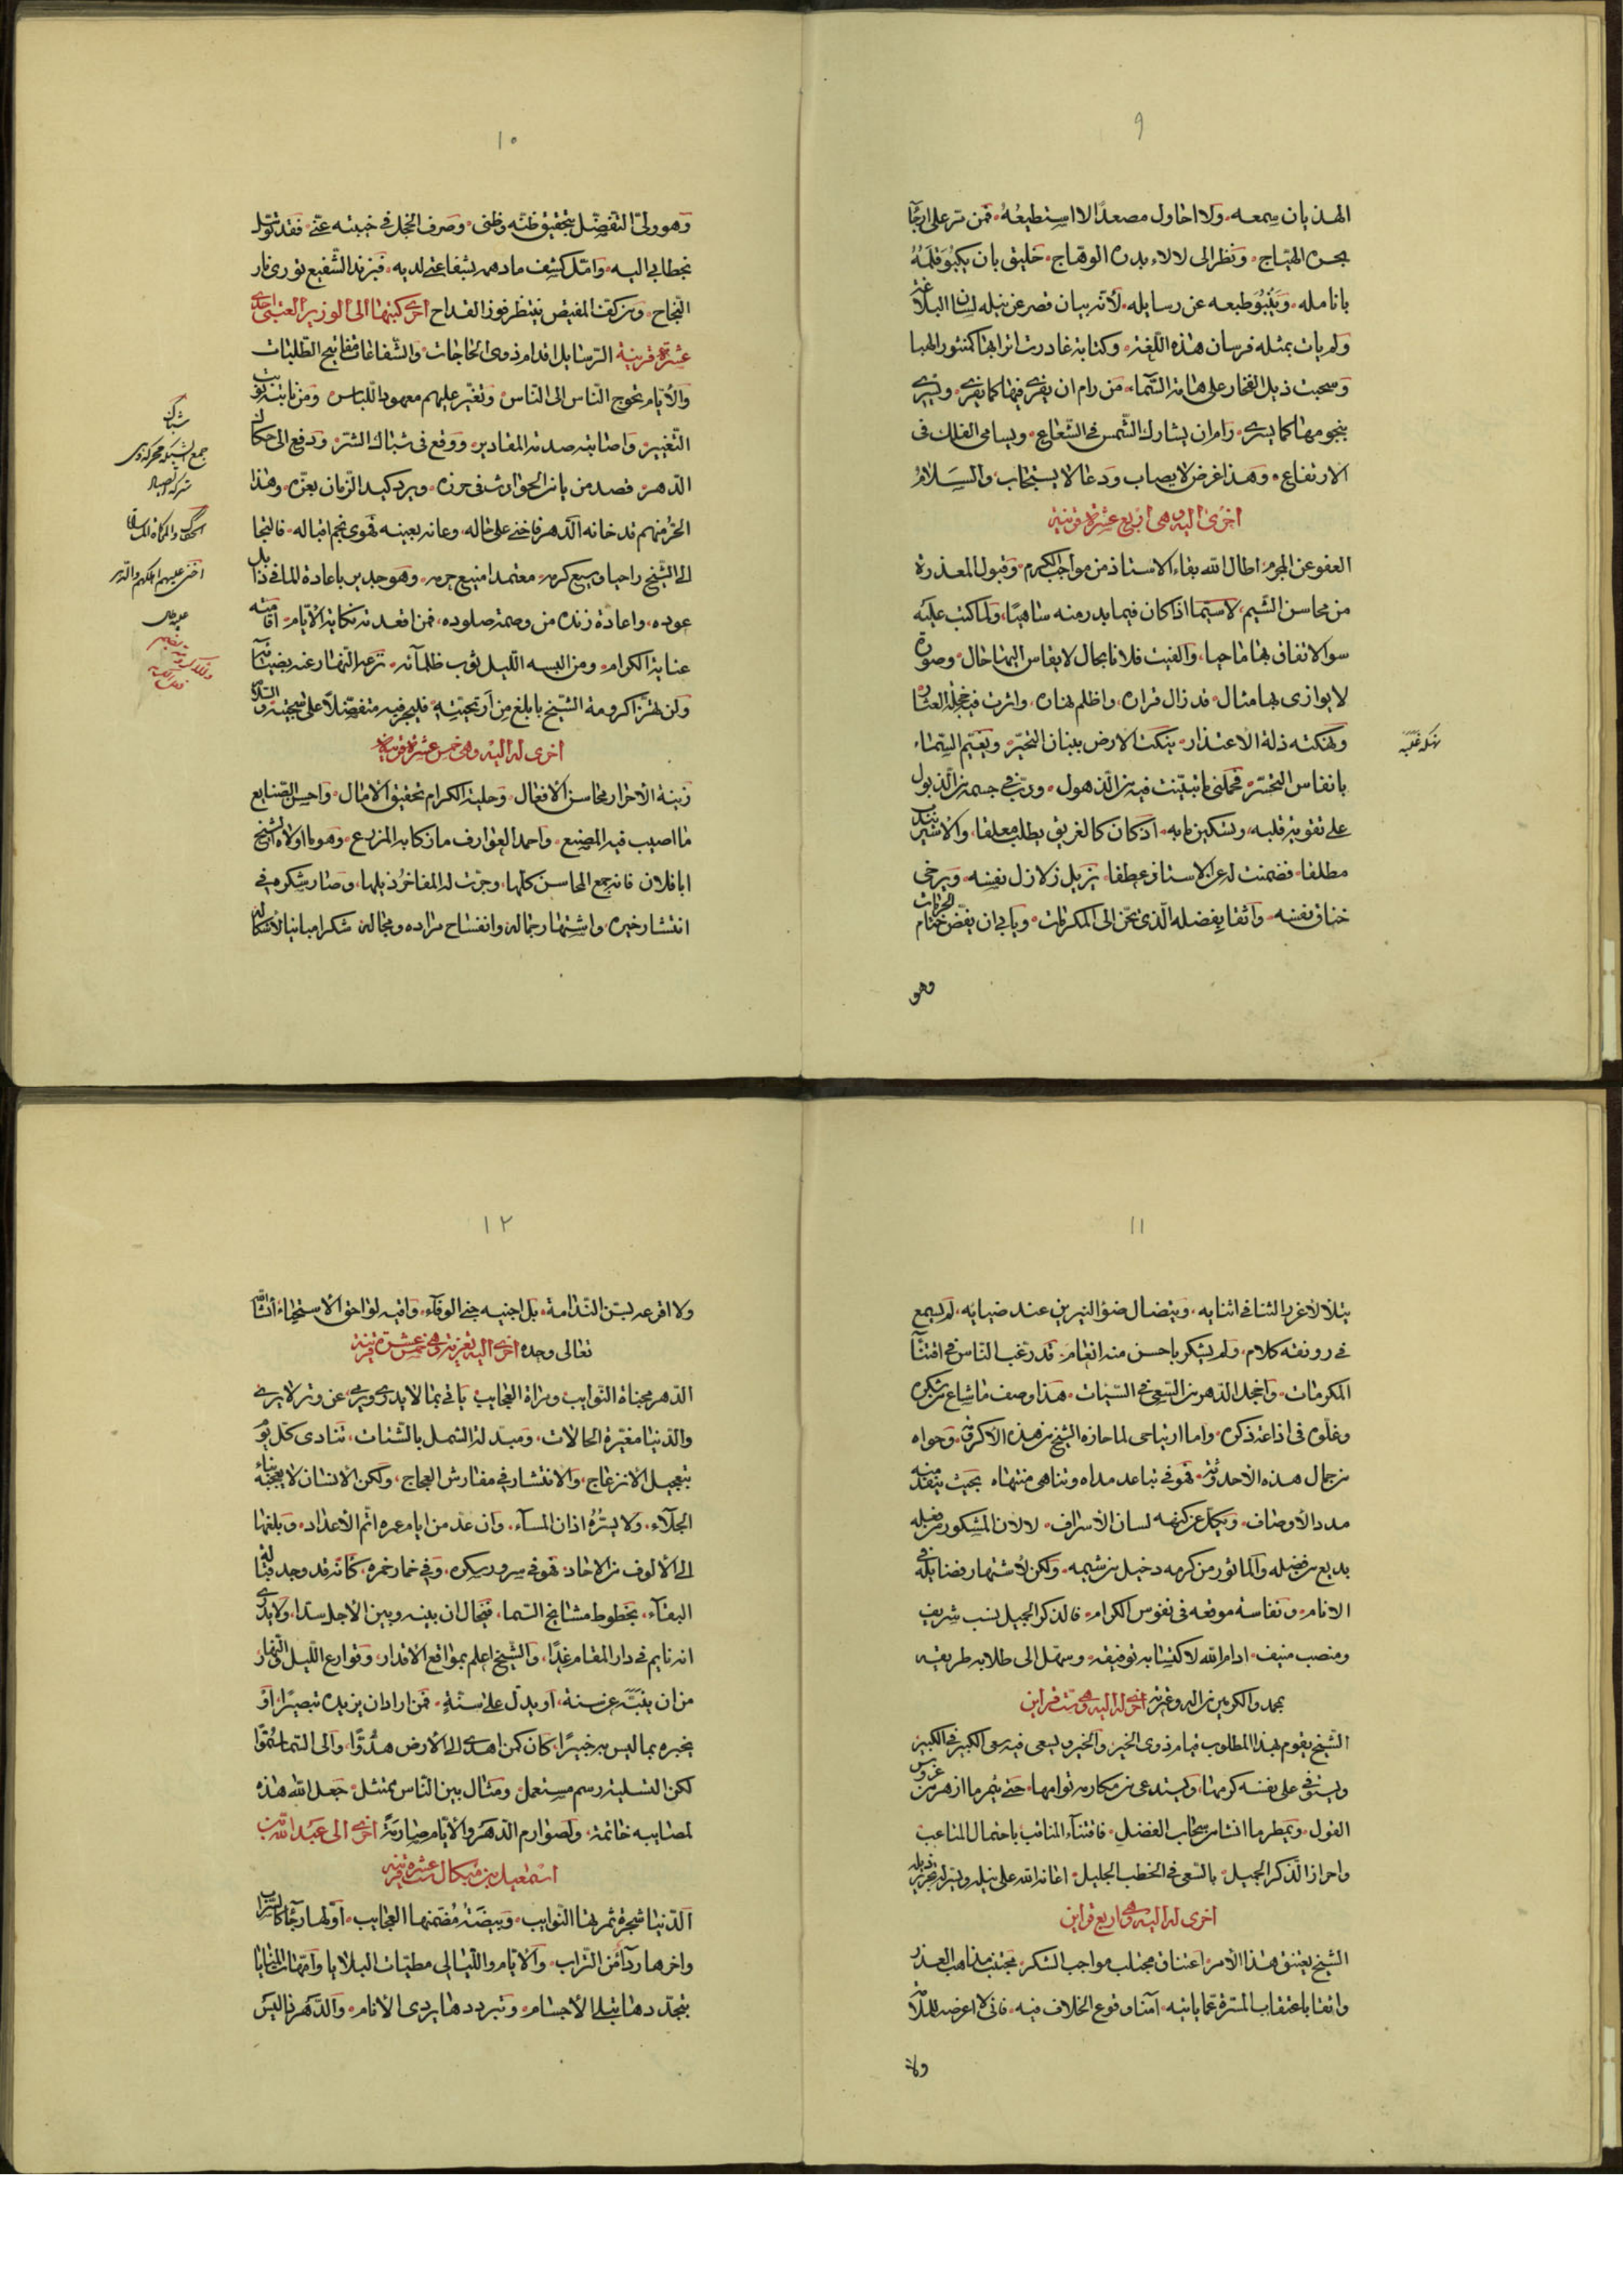 ٩
الهذيان سمعه ولا احاول مصعدًا لا استطيعُهُ فمن مر على ارجآء
بحره الهيّاج ونظر الى لالاء بدره الوهاج خليق بان يكبُوَ قلمُهُ
بانامله وينبُوَ طبعه عن رسايله لأنّه بيان قصر عن نيله لسان البلاغة
ولم يات بمثله فرسان هذه اللّغة وكتابة غادرت اترابها كمنثور الهبا
وسحبت ذيل الفخار على هامة السّماء من رام ان يفرى فيها كما يفرى ويسرى
بنجومها كما يسرى رام ان يشارك الشّمس فى الشّعاع ويسامى الفلك فى
الارتفاع وهذا غرض لا يصاب ودعا لا يستجاب والسّلام
اخرى اليه وهى اربع عشرة قرينة
العفو عن المجرم اطال الله بقاء الاستاذ من مواجب الكرم وقبول المعذرة
من محاسن الشيم لا سيّما اذا كان فيما بدر منه ساهيًا ولما كتب عليه
سوالاتفاق بها ماحيا والفيت فلانا بحال لا يقاس اليها حال وصورة
لا يوازى بها مثال قد زال قراره واظلم نهاره واثرت فيه خجلة العثار
ونهكته ذلة الاعتذار ينكت الارض ببنان التحيّر ويغيّم السّماء
بانفاس التحسّر فحملنى ما تبيّنت فيه من الذهول ودبّ فى جسمه من الذبول
على تقوية قلبه وتسكين ما به اذ كان كالغريق يطلب معلقا والاسير يبتغى
مطلقا فضمنت له عن الاستاذ عطفا يزيل زلازل نفسه ويرخى
خناق نفسه واثقا بفضله الّذى يحنّ الى المكرمات ويابى ان يفضّ ختام الحرمات
وهو
نهكه غلبه
١٠
وهو ولىّ التفضّل بتحقيق ظنّه وظنى وصرف الخجل فى خيبته عنّى فقد توسّل
بخطابى اليه وامّل كشف ما دهمه بشفاعتى لديه فبزند الشّفيع تورى نار
النّجاح ومن كفّ المفيض ينتظر فوز القداح اخرى كتبها الى الوزير العتبى احدى
عشرة قرينة الرّسايل اقدام ذوى الحاجات والشّفاعات مفاتيح الطّلبات
والأيّام تحوج النّاس الى النّاس وتغيّر عليهم معهود اللّباس ومن نابته نوب
التّغيير واصابته صدمة المقادير ووقع فى شباك الشّرّ ودفع الى حكاك
الدّهر قصد من يامن الحوادث فى حرزه ويرد كيد الزّمان بعزّه وهذا
الحرّ منهم قد خانه الدّهر فاخنى على حاله وعانه بعينه فهوى نجم اقباله فالتجا
الى الشّيخ راجيا وسيع كرمه معتمدا منيع حرمه وهو جدير باعادة الماء فى ذابل
عوده واعادة زنده من وصمة صلوده فمن اقعدته نكاية الأيّام اقامته
عناية الكرام ومن البسه اللّيل ثوب ظلمآئه نزعه النّهار عنه بضيائه
ولن تهزّ اكرومة الشّيخ بابلغ من اريحيّته فليجر فيه متفضّلا على سجيّته والسّلام
اخرى له اليه وهى خمس عشرة قرينة
زينة الأحرار محاسن الأفعال وحلية الكرام تحقيق الآمال واحسن الصّنايع
ما اصيب فيه المصنع واحمد العوارف ما زكا به المزرع وهو ما اولاه الشّيخ
ابا فلان فانه جمع المحاسن كلّها وجرّت له المفاخر ذيلها وصار شكره فى
انتشار خيره واشتهار جماله وانفساح مراده ومجاله شكرا مباينا لأشكاله
شباك
١١
يتلألأ غرر الثنا فى اثنايه ويتضال ضوء النيرين عند ضيايه لم يسمع
فى رونقه كلام ولم يشكر باحسن منه انعام قد رغب النّاس فى اقتنآء
المكرمات واخجل الدّهر من السّعى فى السّيئات هذا وصف ما شاع من شكره
وغلوّه فى اذاعة ذكره واما ارتياحى لما حازه الشّيخ من هذه الاكرومة وحواه
من جمال هذه الأحدوثة فهو فى تباعد مداه وتناهى منتهاه بحيث ينفد منه
مدد الأوصاف ويكلّ عن كنهه لسان الأسراف لا لان المشكور من فعله
بديع من فضله والماثور من كرمه دخيل من شيمه ولكن لأشتهار فضايله فى
الانام ونفاسة موقعه فى نفوس الكرام فالذكر الجميل نسب شريف
ومنصب منيف ادام الله لاكتسابه توفيقه وسهّل الى طلابه طريقه
بمحمد والاكرمين من اله وعترته اخرى له اليه وهى ستّ قراين
الشّيخ يقوم لهذا المطلوب قيام ذوى الخير والخير ويسعى فيه سعى الكبير فى الكبير
ويستوفى على نفسه كرمها ويستدعى من مكارمه توامها حتى يثمر ما ازهر من غروس
القول ويمطر ما انشا من سحاب الفضل فاقتنآء المناقب باحتمال المتاعب
واحراز الذّكر الجميل بالسّعى فى الخطب الجليل اعانه الله على نيله ويسّر له تجرير ذيله
اخرى له اليه وهى اربع قراين
الشّيخ يعتنق هذا الأمر اعتناق مجتلب مواجب الشكر مجتنب مذاهب العذر
واثقا باعتقاب المسرّة عمّا ياتيه آمنا وقوع الخلاف فيه فانى لا اعرضه للملام
ولا
١٢
ولا اقرعه بسنّ النّدامة بل اجنيه جنى الوفآء واقيه لواحق الأستحياء انشآء الله
تعالى وحده اخرى اليه تعزية وهى خمس عشرة قرينة
الدّهر مجناة النّوايب ومراة العجايب ياتى بما لا يدرى ويرمى عن وتر لا يرى
والدّنيا مغيّرة الحالات ومبدّلة الشمل بالشّتات تنادى كلّ يوم
بتعجيل الأنزعاج والانتشار فى مفارش العجاج ولكن الأنسان لا يعجبه نباء
الجلآء ولا يسرّه اذان المسآء وان عدّ من ايام عمره اتم الأعداد وبلغها
الى الألوف من الاحاد فهو فى سرور سكره وفى خمار خمره كأنّه قد وجد قبالة
البقآء بخطوط مشايخ السّما فيخال ان بينه وبين الأجل سدا ولا يدرى
انه نايم فى دار المقام غدًا والشّيخ اعلم بمواقع الأقدار وقوارع اللّيل والنّهار
من ان ينبّه عن سنة او يدلّ على سنّة فمن اراد ان يزيده تبصيرًا او
يخبره بما ليس به خبيرًا كان كمن اهدى الى الأرض هدُوًّا والى السّماء سُمُوًّا
لكن التسلية رسم مستعمل ومثال بين النّاس ممتثل جعل الله هذه
لمصايبه خاتمة ولصوارم الدّهر والأيّام صارمة اخرى الى عبد الله بن
اسمعيل بن ميكال ستّ عشرة قرينة
الدّنيا شجرة ثمرتها النّوايب وبيضة مُضمّنها العجايب اوّلها رجاء كالسّراب
واخرها ردآء من التّراب والأيّام واللّيالى مطيّات البلايا وامّهات المنايا
بتجدّدها تبلى الأجسام وتبردد ها يردى الأنام والدّهر ما ليس